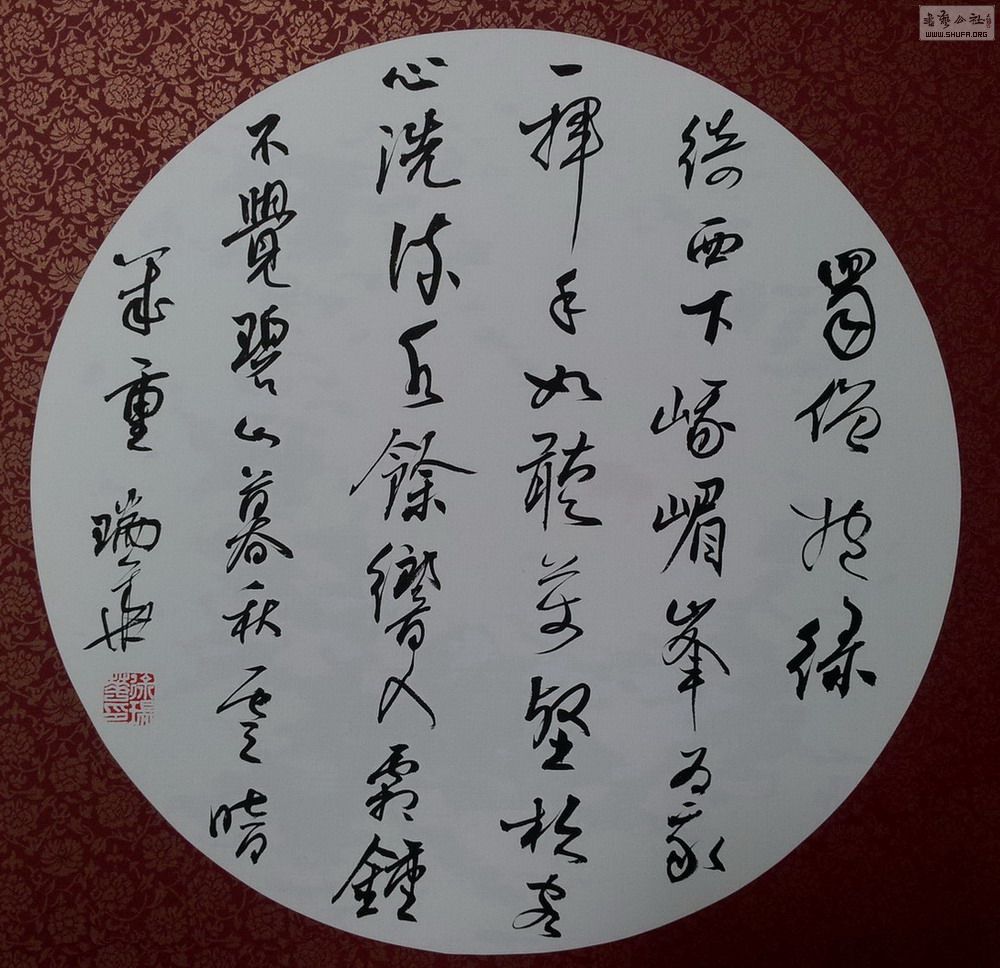 蜀僧抱綠
綺西下峨嵋峯為我
一揮手如聽萬壑松客
心洗流水餘響入霜鍾
不覺碧山暮秋雲暗
幾重 瑞華
徐瑞華印
書藝公社
WWW.SHUFA.ORG